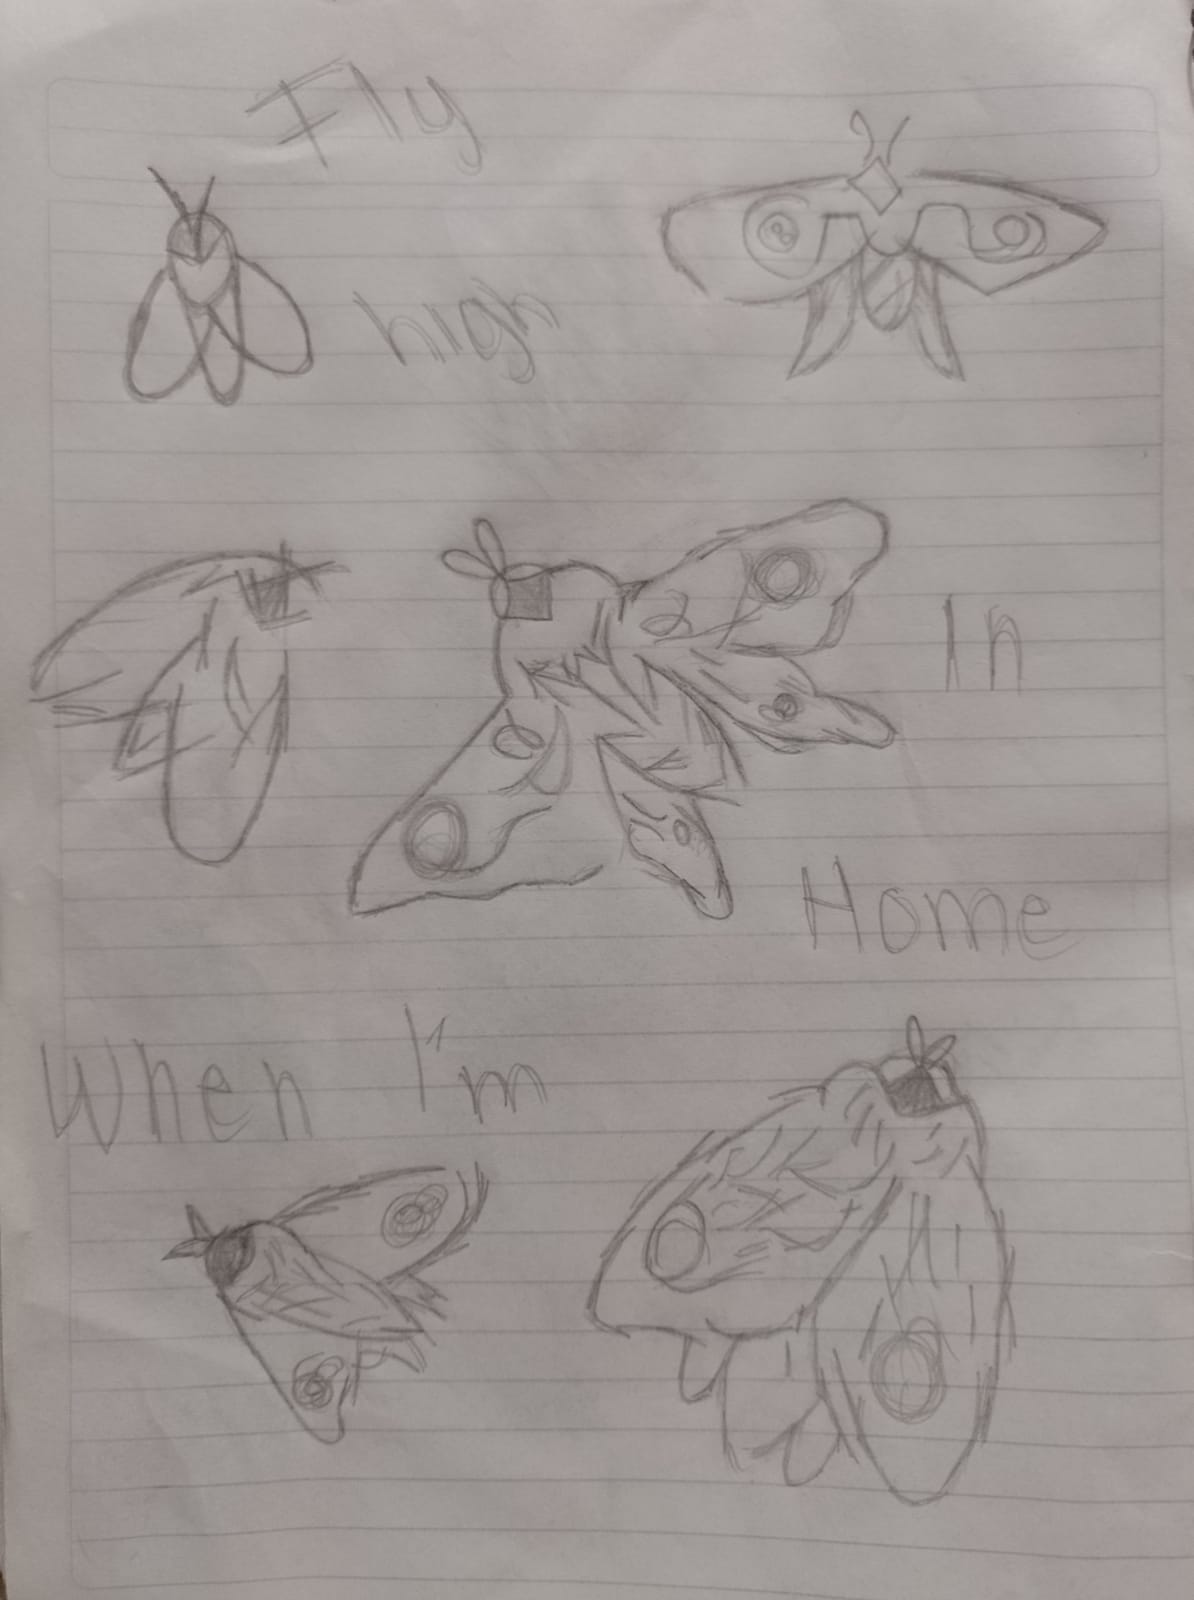 Fly
high
In
Home
When I'm